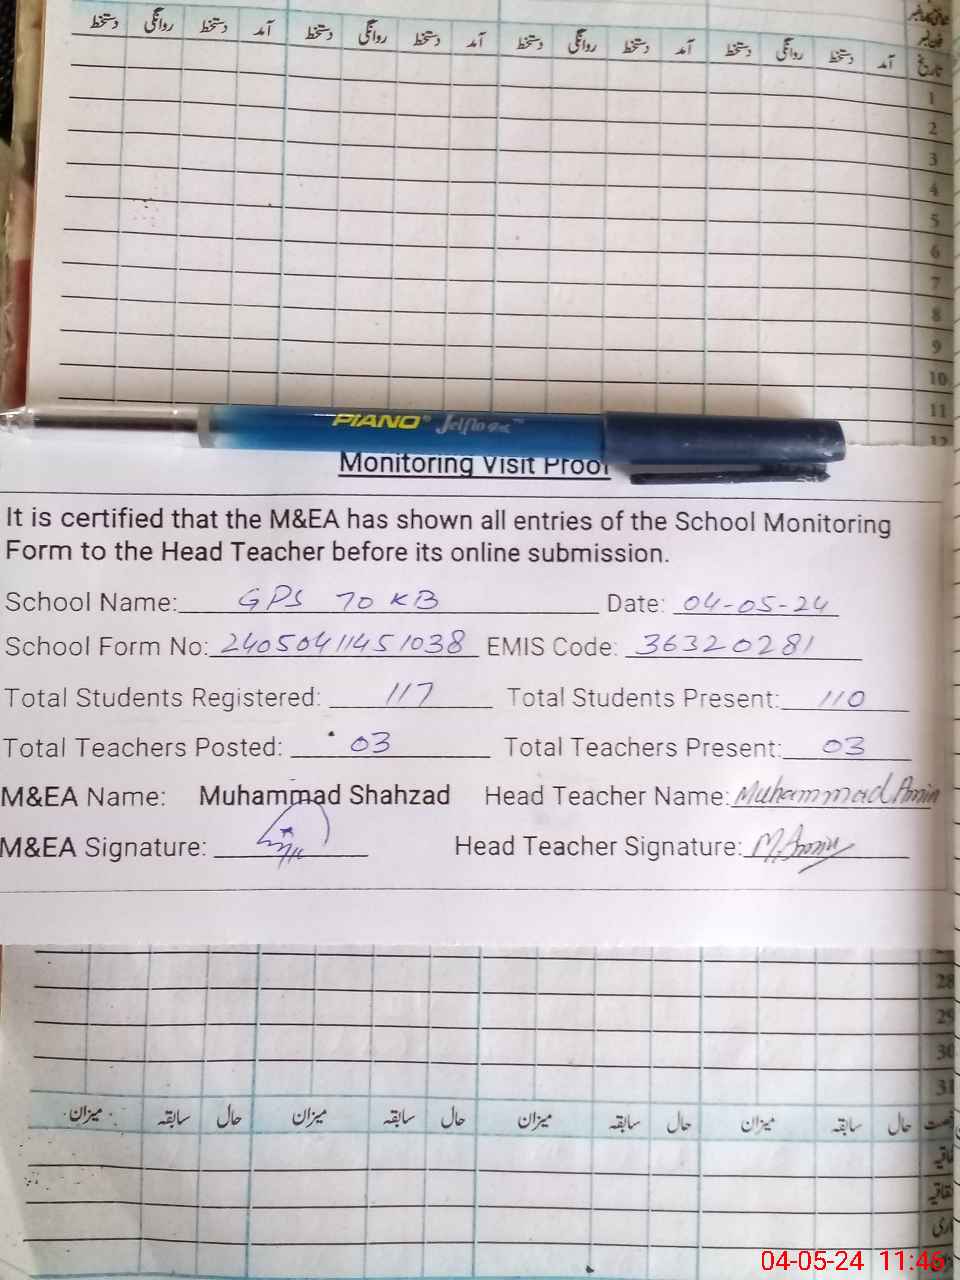 حاضری کارڈ نمبر
فون نمبر
تاریخ آمد دستخط روانگی دستخط آمد دستخط روانگی دستخط آمد دستخط روانگی دستخط آمد دستخط روانگی دستخط
1
2
3
4
5
6
7
8
9
10
11
12
PIANO Jelflo
Monitoring Visit Proof
It is certified that the M&EA has shown all entries of the School Monitoring
Form to the Head Teacher before its online submission.
School Name: GPS 70 KB Date: 04-05-24
School Form No: 2405041145 1038 EMIS Code: 36320281
Total Students Registered: 117 Total Students Present: 110
Total Teachers Posted: 03 Total Teachers Present: 03
M&EA Name: Muhammad Shahzad Head Teacher Name: Muhammad Amin
M&EA Signature: Head Teacher Signature: M. Amin
28
29
30
31
حال سابقہ میزان حال سابقہ میزان حال سابقہ میزان حال سابقہ میزان
04-05-24 11:46